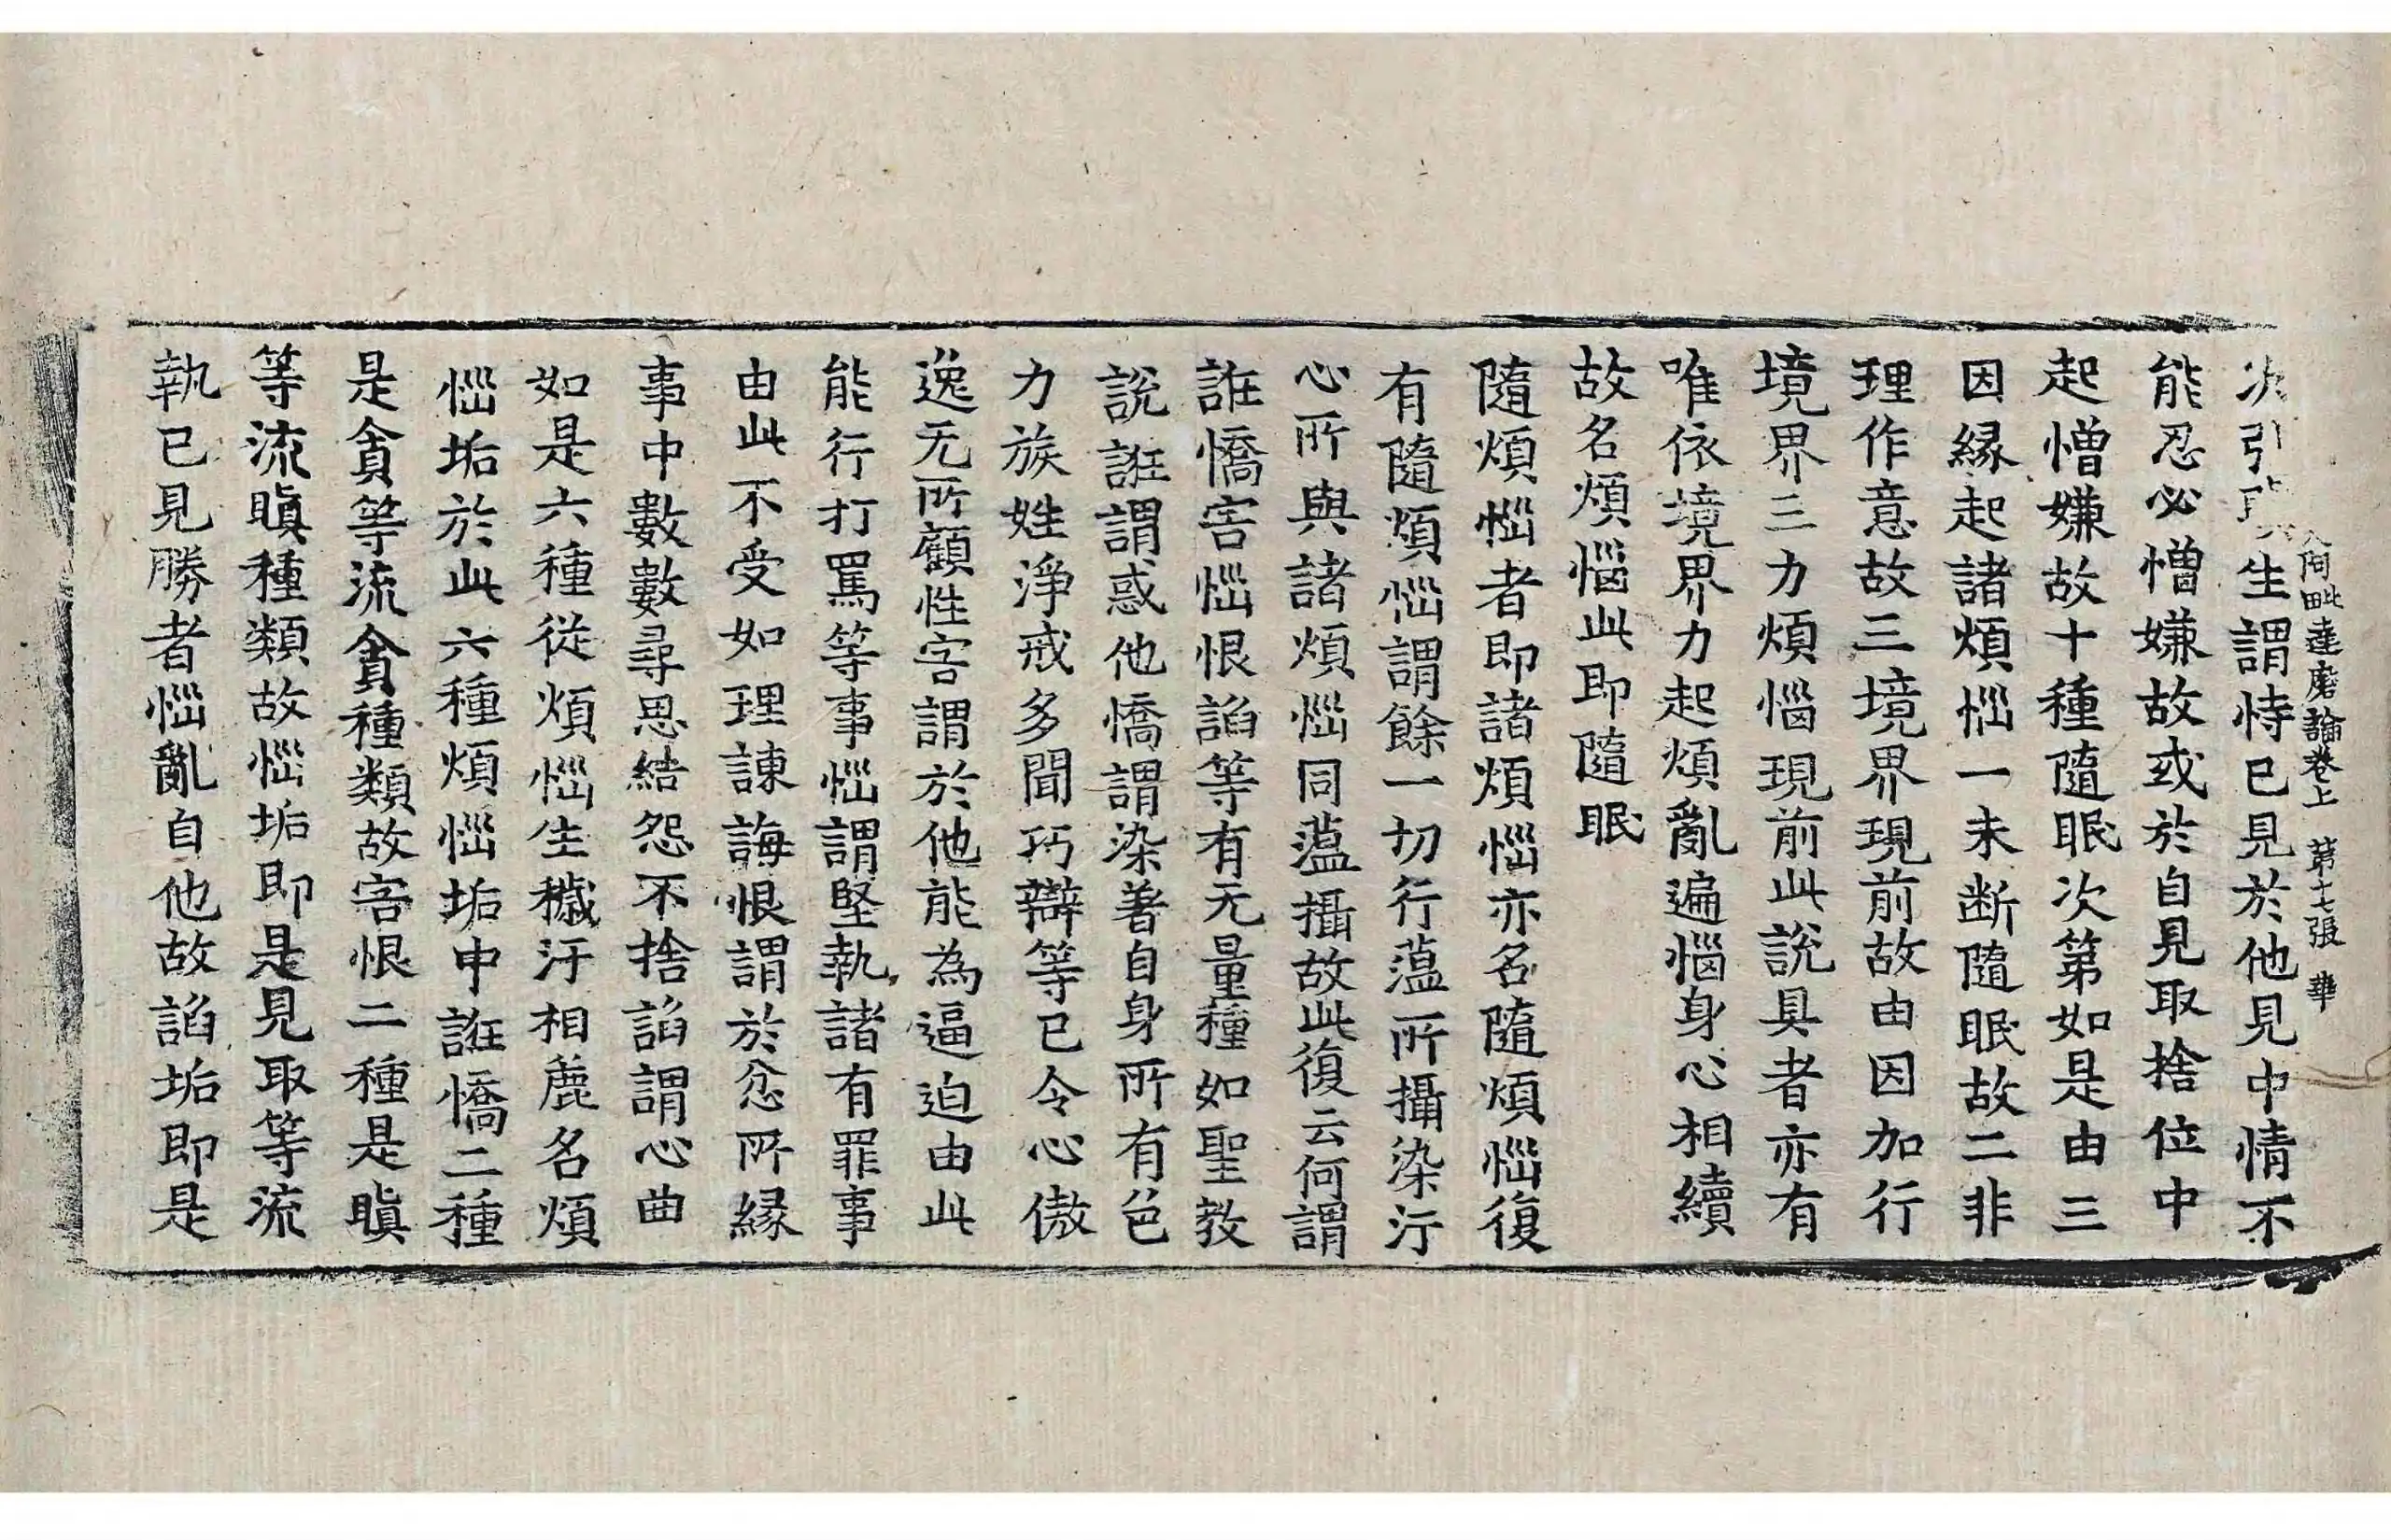 入阿毗達磨論卷上 第十七張 華
次引瞋生謂恃已見於他見中情不
能忍必憎嫌故或於自見取捨位中
起憎嫌故十種隨眠次第如是由三
因縁起諸煩惱一未斷隨眠故二非
理作意故三境界現前故由因加行
境界三力煩惱現前此說具者亦有
唯依境界力起煩亂遍惱身心相續
故名煩惱此即隨眠
隨煩惱者即諸煩惱亦名隨煩惱復
有隨煩惱謂餘一切行蕰所攝染汙
心所與諸煩惱同蕰攝故此復云何謂
誑憍害惱恨諂等有无量種如聖教
說誑謂惑他憍謂染著自身所有色
力族姓淨戒多聞巧辯等已令心傲
逸无所顧性害謂於他能為逼迫由此
能行打罵等事惱謂堅執諸有罪事
由此不受如理諫誨恨謂於忿所縁
事中數數尋思結怨不捨諂謂心曲
如是六種從煩惱生穢汙相麁名煩
惱垢於此六種煩惱垢中誑憍二種
是貪等流貪種類故害恨二種是瞋
等流瞋種類故惱垢即是見取等流
執已見勝者惱亂自他故諂垢即是